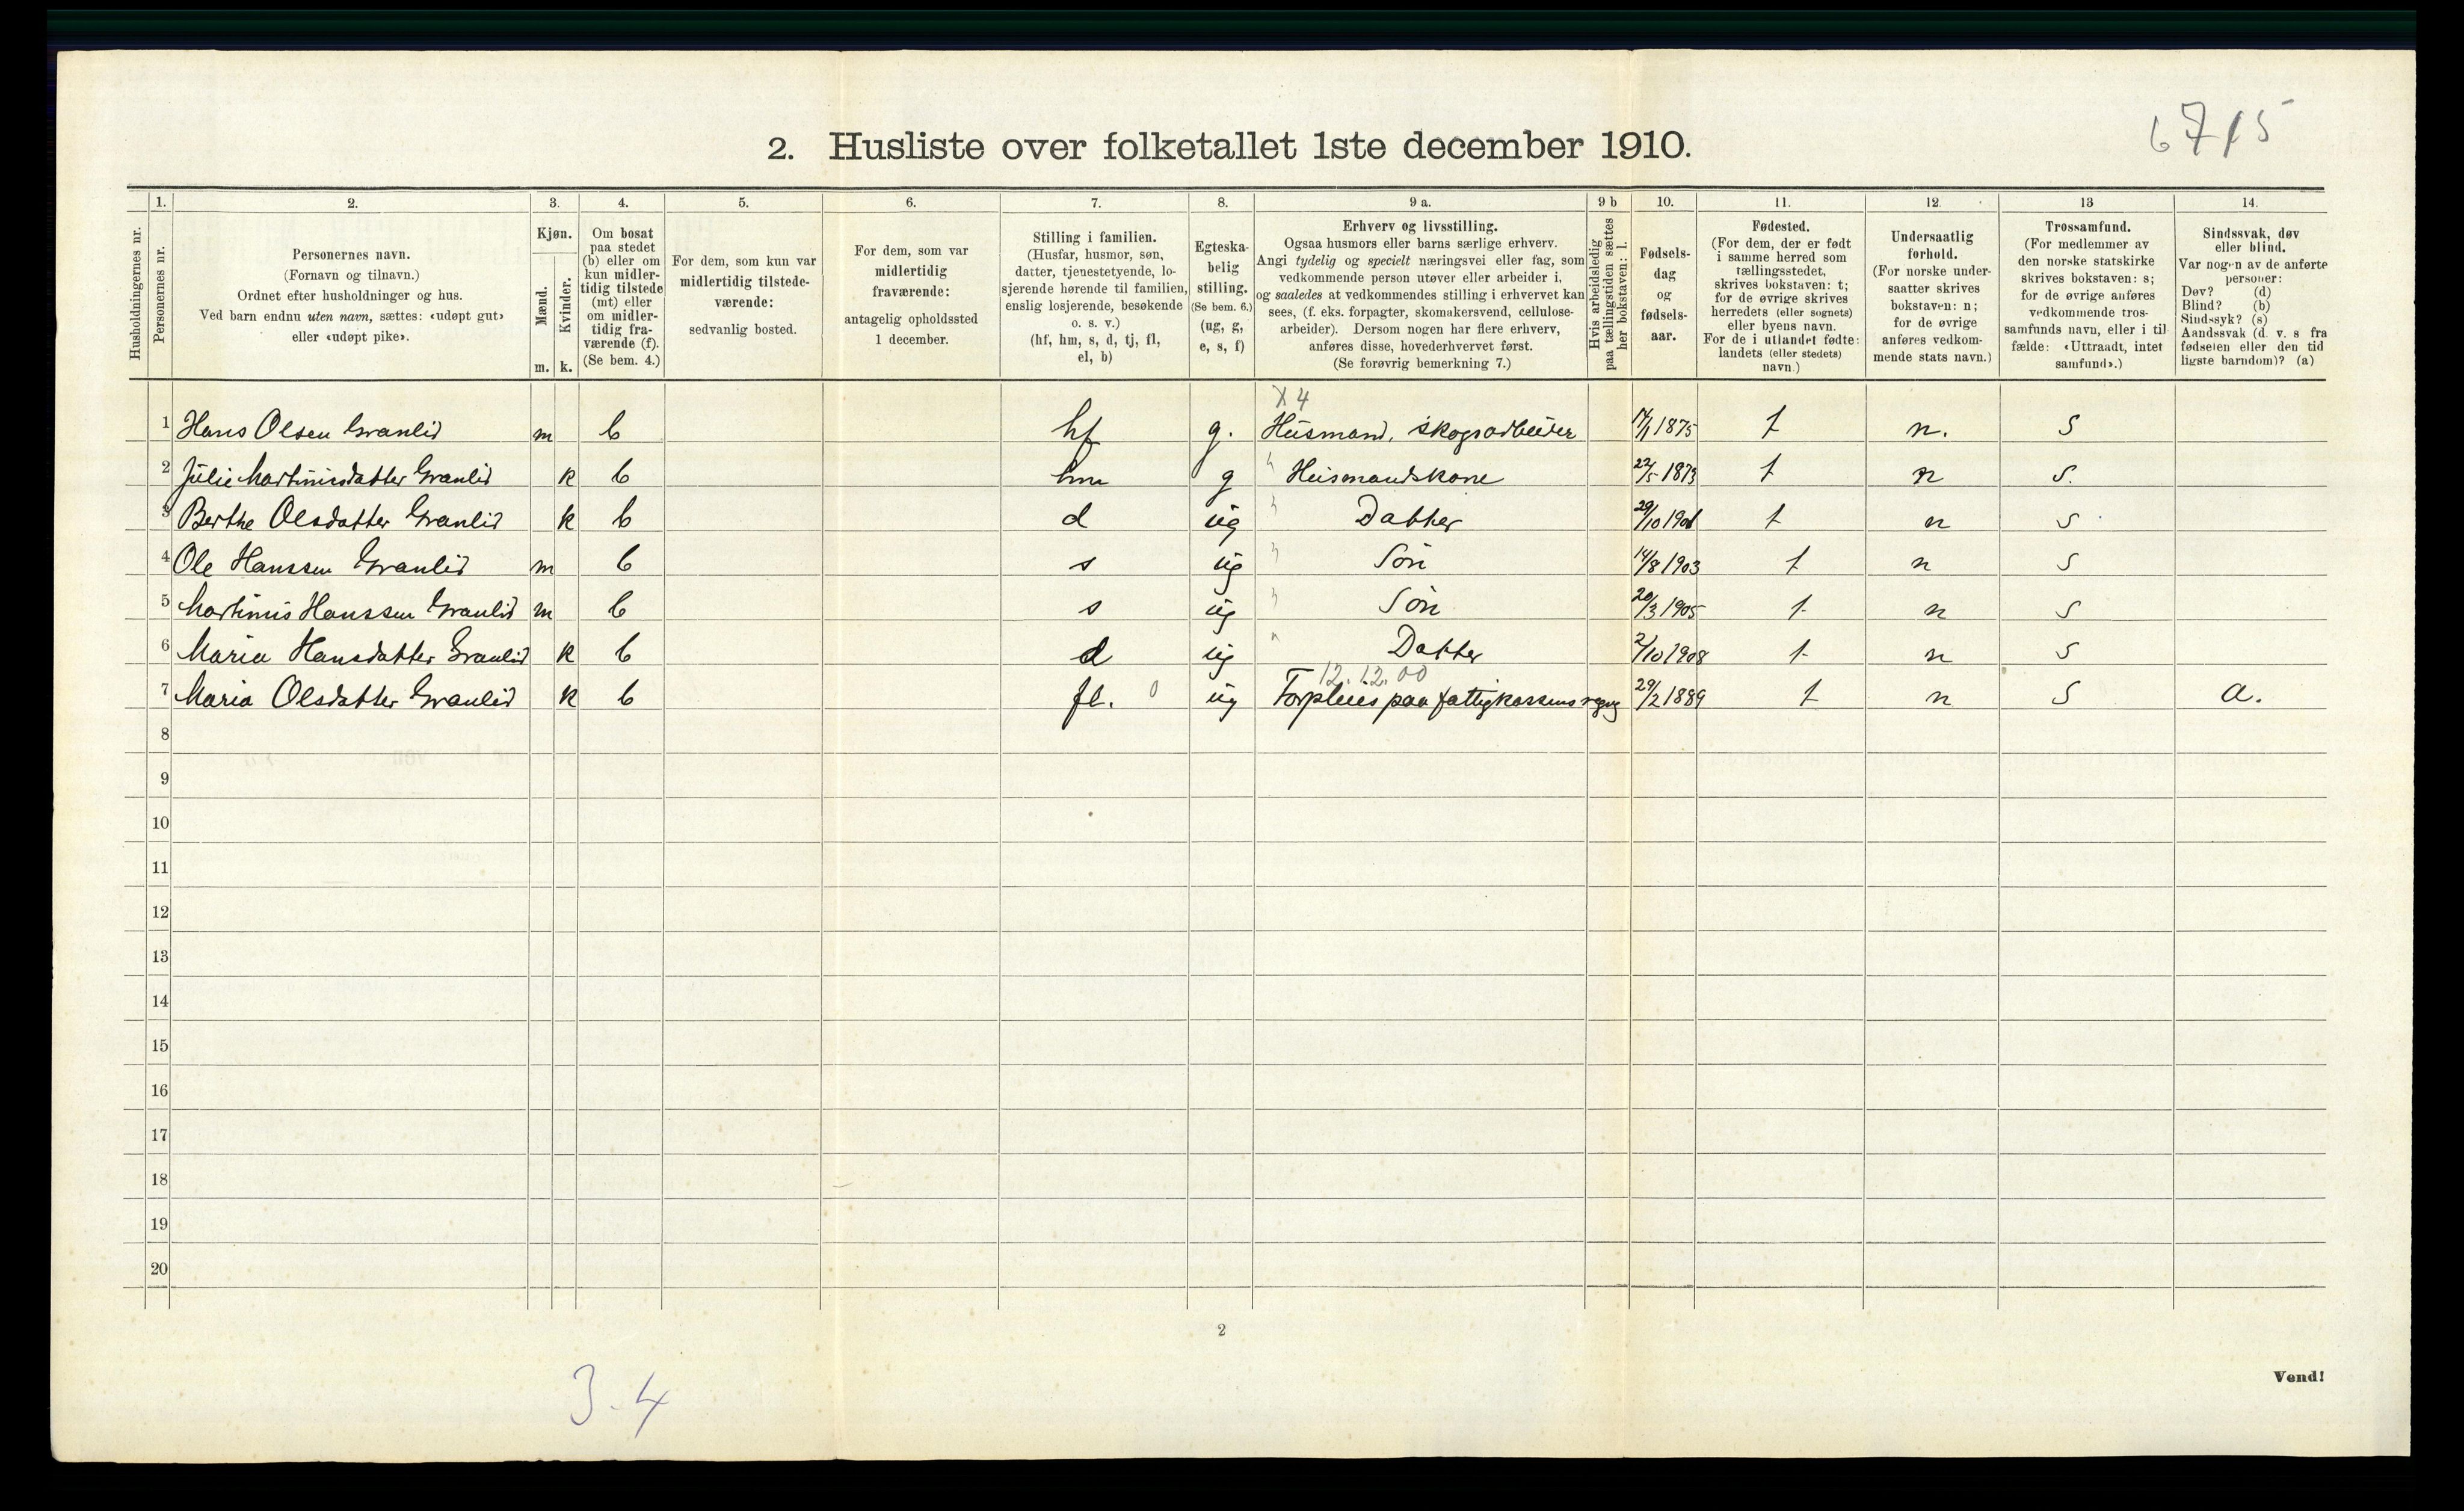 6715
2. Husliste over folketallet 1ste december 1910.
1. 2. 3. 4. 5. 6. 7. 8. 9 a. 9 b 10. 11. 12. 13 14.
Husholdningernes nr.
Personernes nr.
Personernes navn.
(Fornavn og tilnavn.)
Ordnet efter husholdninger og hus.
Ved barn endnu uten navn, sættes: «udøpt gut»
eller «udøpt pike».
Kjøn.
Mænd.
Kvinder.
m. k.
Om bosat
paa stedet
(b) eller om
kun midler-
tidig tilstede
(mt) eller
om midler-
tidig fra-
værende (f).
(Se bem. 4.)
For dem, som kun var
midlertidig tilstede-
værende:
sedvanlig bosted.
For dem, som var
midlertidig
fraværende:
antagelig opholdssted
1 december.
Stilling i familien.
(Husfar, husmor, søn,
datter, tjenestetyende, lo-
sjerende hørende til familien,
enslig losjerende, besøkende
o. s. v.)
(hf, hm, s, d, tj, fl,
el, b)
Egteska-
belig
stilling.
(Se bem. 6.)
(ug, g,
e, s, f)
Erhverv og livsstilling.
Ogsaa husmors eller barns særlige erhverv.
Angi tydelig og specielt næringsvei eller fag, som
vedkommende person utøver eller arbeider i,
og saaledes at vedkommendes stilling i erhvervet kan
sees, (f. eks. forpagter, skomakersvend, cellulose-
arbeider). Dersom nogen har flere erhverv,
anføres disse, hovederhvervet først.
(Se forøvrig bemerkning 7.)
Hvis arbeidsledig
paa tællingstiden sættes
her bokstaven: l.
Fødsels-
dag
og
fødsels-
aar.
Fødested.
(For dem, der er født
i samme herred som
tællingsstedet,
skrives bokstaven: t;
for de øvrige skrives
herredets (eller sognets)
eller byens navn.
For de i utlandet fødte:
landets (eller stedets)
navn.)
Undersaatlig
forhold.
(For norske under-
saatter skrives
bokstaven: n;
for de øvrige
anføres vedkom-
mende stats navn.)
Trossamfund.
(For medlemmer av
den norske statskirke
skrives bokstaven: s;
for de øvrige anføres
vedkommende tros-
samfunds navn, eller i til
fælde: «Uttraadt, intet
samfund».)
Sindssvak, døv
eller blind.
Var nogen av de anførte
personer:
Døv? (d)
Blind? (b)
Sindssyk? (s)
Aandssvak (d. v. s fra
fødselen eller den tid
ligste barndom)? (a)
X 4
1 Hans Olsen Granlid m b hf g. Husmand, skogsarbeider 1875 t n. S
2 Julie Martinusdatter Granlid k b hm g " Husmandskone 22/5 1873 t n S.
3 Berthe Olsdatter Granlid k b d ug " Datter 29/10 1901 t n S
4 Ole Hanssen Granlid m b s ug " Søn 14/8 1903 t n S
5 Martinus Hanssen Granlid m b s ug " Søn 20/3 1905 t n S
6 Maria Hansdatter Granlid k b d ug " Datter 2/10 1908 t n S
12.12.00
7 Maria Olsdatter Granlid k b fl. 0 ug Forpleies paa fattigkassens regng 29/2 1889 t n S a.
8
9
10
11
12
13
14
15
16
17
18
19
20
2
Vend!
3-4